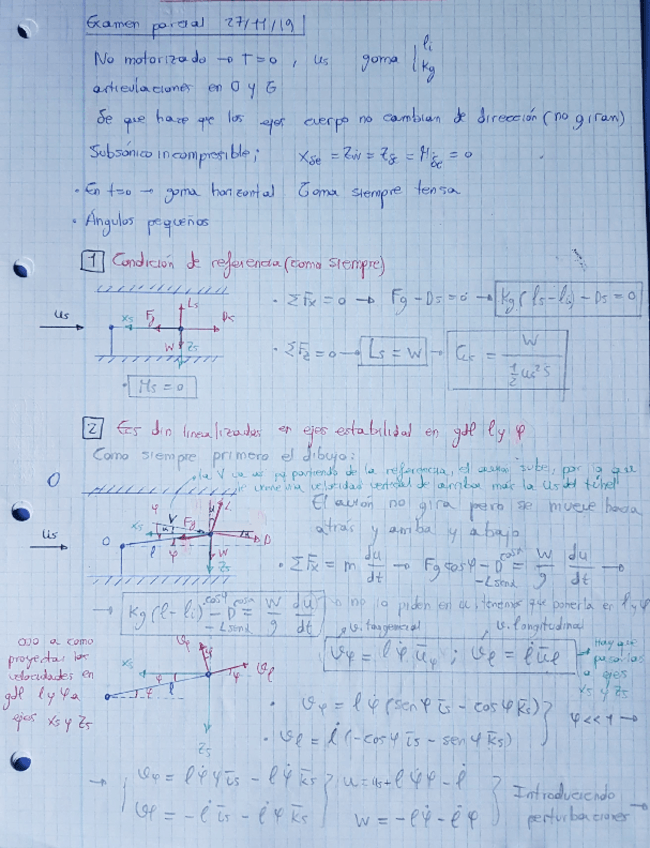 Examen parcial 27/11/19
No motorizado → T=0, us goma { li
kg
articulaciones en O y G
Se que hace que los ejes cuerpo no cambian de dirección (no giran)
Subsónico incompresible; xδe = Zẇ = Zδ̇e = Mδ̇e = 0
· En t=0 → goma horizontal Goma siempre tensa
· Ángulos pequeños
1 Condición de referencia (como siempre)
us
xs Fg Ls Ds
W Zs
· Ms = 0
· ΣFx = 0 → Fg - Ds = 0 → kg(ls - li) - Ds = 0
· ΣFz = 0 → Ls = W → CLs = W / ½ us² S
2 Ecs din linealizadas en ejes estabilidad en gdl l y φ
Como siempre primero el dibujo:
la V partiendo de la referencia, el avión sube, por lo que
velocidad vertical de arriba más la us del túnel
El avión no gira pero se mueve hacia
atrás y arriba y abajo
us
O
xs V Fg L D
l φ W Zs
· ΣFx = m du/dt → Fg cosφ - D cosα - L senα = W/g du/dt →
→ kg(l - li) cosφ - D cosα - L senα = W/g du/dt no la piden en u, tenemos que ponerla en l y φ
v. tangencial v. longitudinal
vφ = l φ̇ ūφ ; vl = l̇ ūl
Hay que pasarlas a ejes xs y zs
ojo a como
proyectar las
velocidades en
gdl l y φ a
ejes xs y zs
xs vφ φ vl
φ l
Zs
· vφ = l φ̇ (senφ īs - cosφ k̄s)
· vl = l̇ (-cosφ īs - senφ k̄s)
φ << 1 →
→ vφ = l φ̇ φ īs - l φ̇ k̄s
vl = -l̇ īs - l̇ φ k̄s
u = us + l φ̇ φ - l̇
w = -l φ̇ - l̇ φ
Introduciendo
perturbaciones →